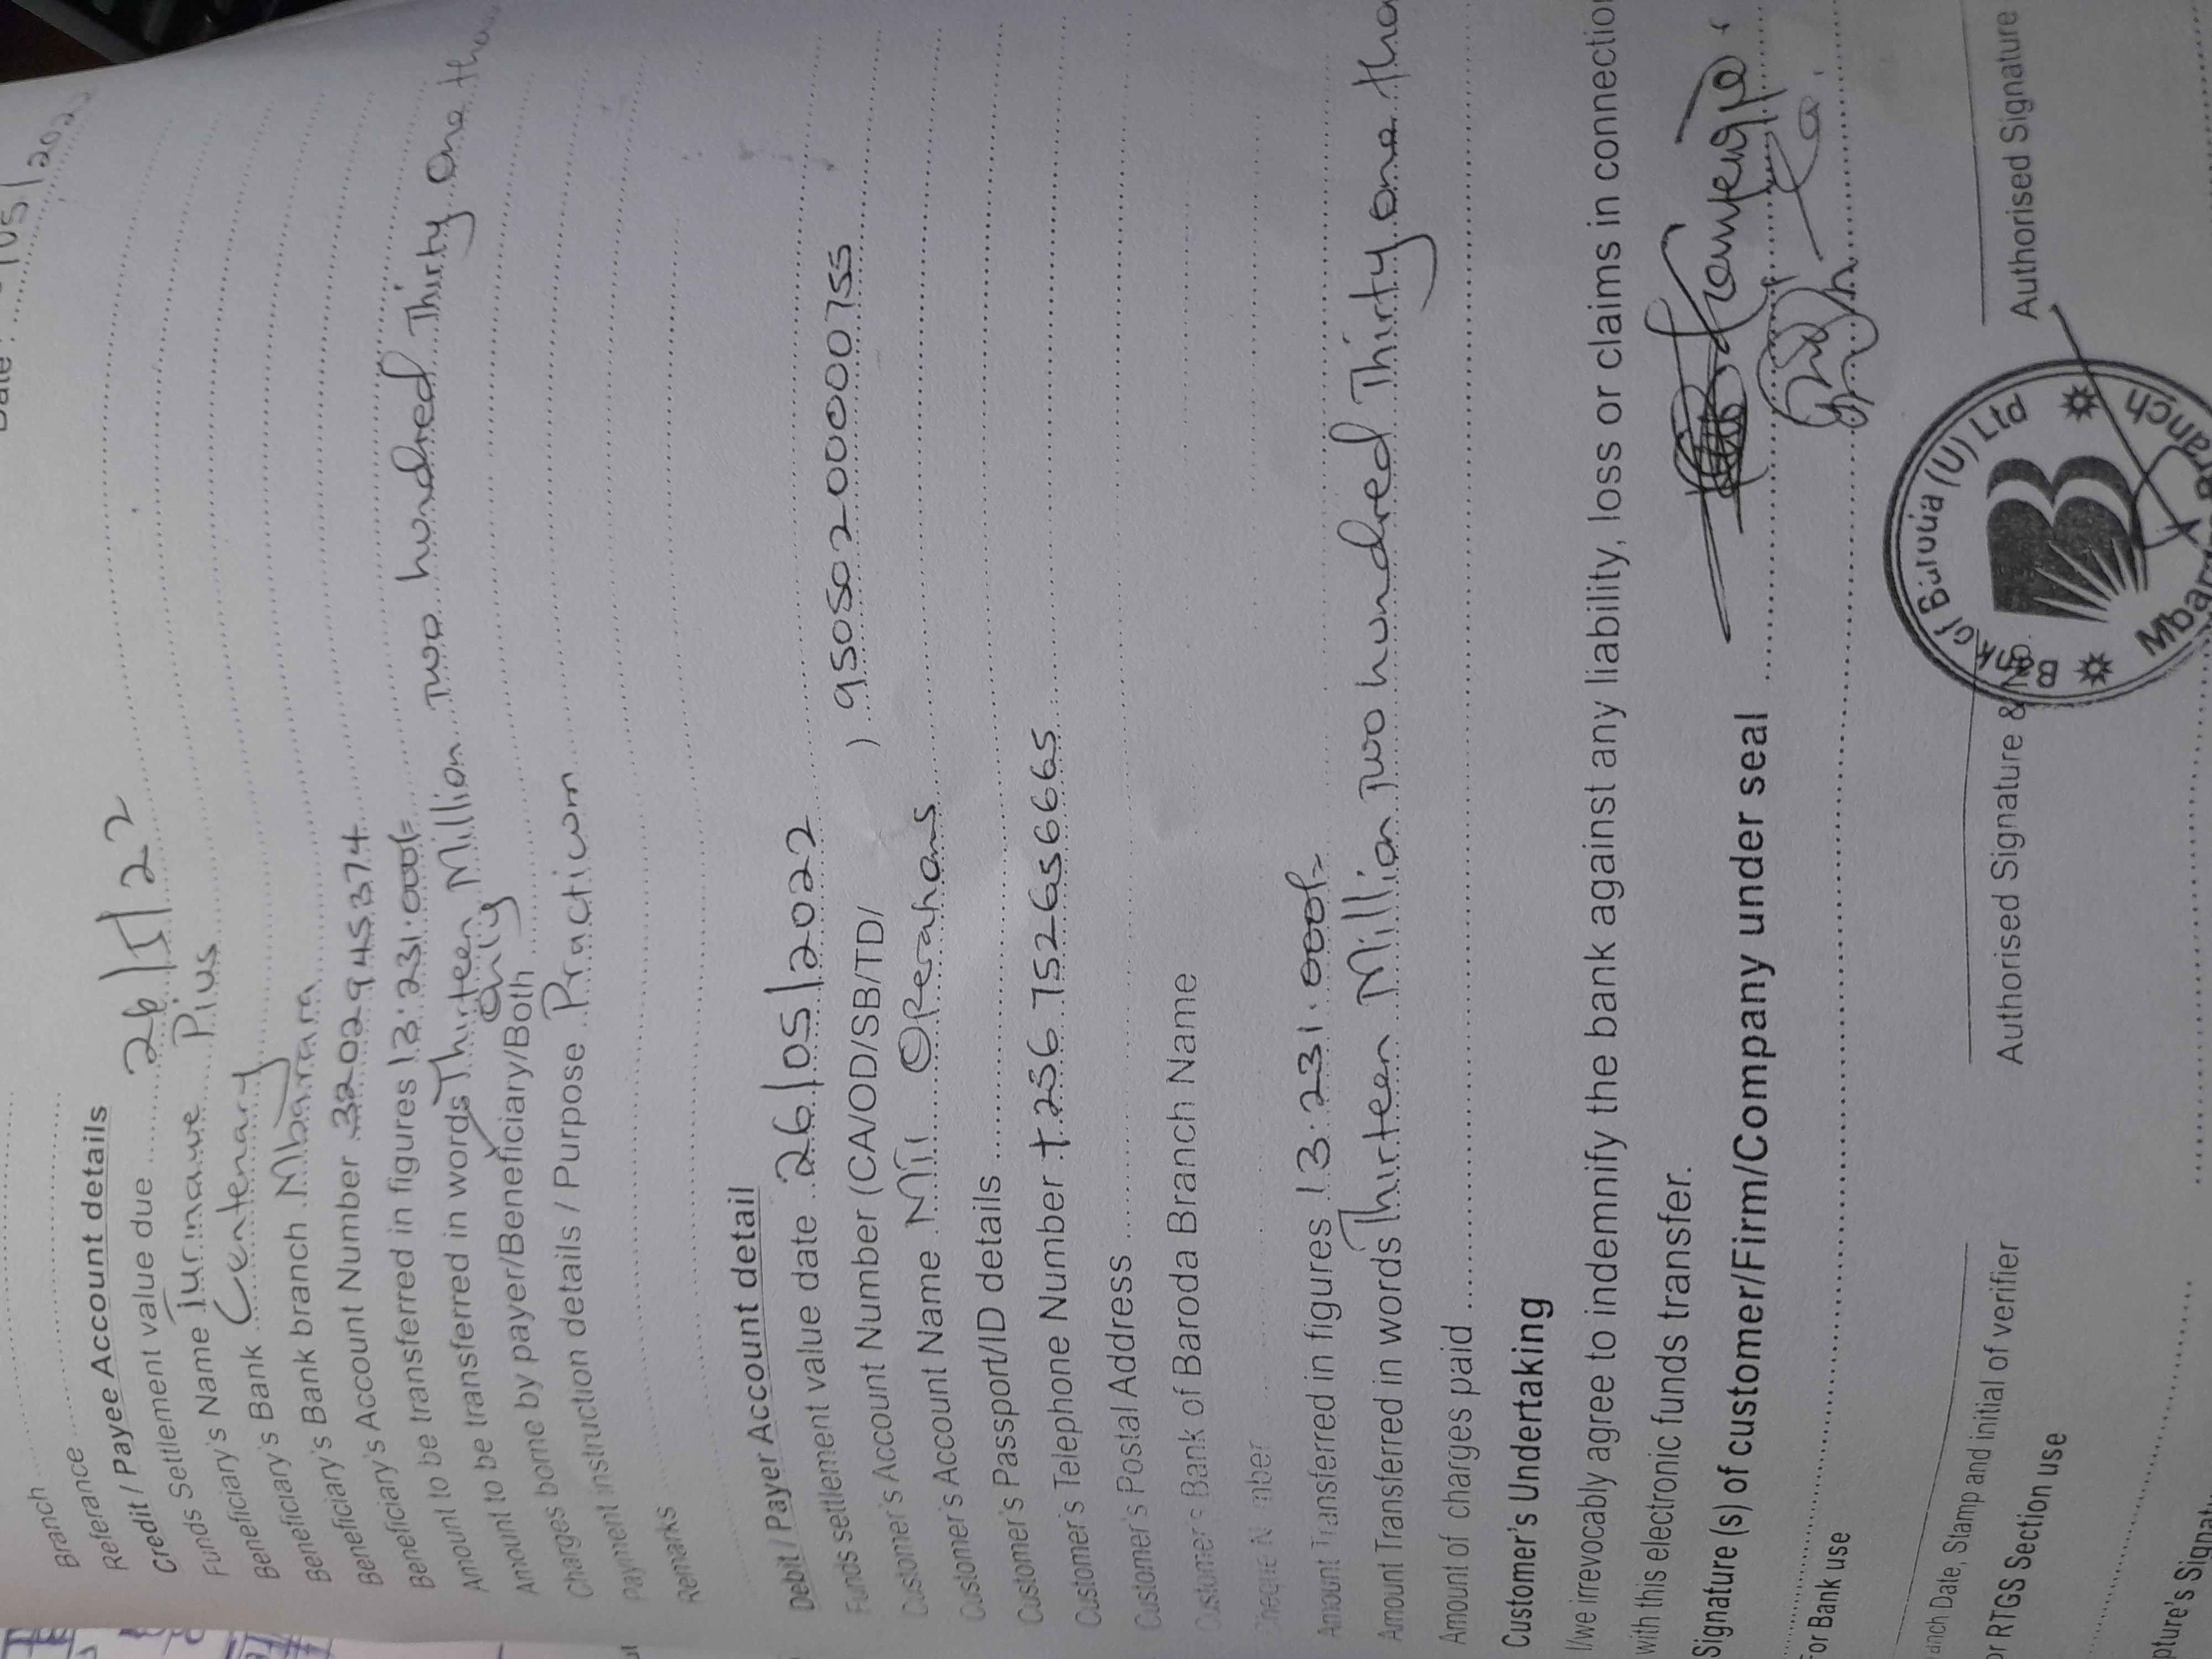 Branch
Date : /05/202
Referance
Credit / Payee Account details
Funds Settlement value due 26/5/22
Beneficiary's Name Turinawe Pius
Beneficiary's Bank Centenary
Beneficiary's Bank branch Mbarara
Beneficiary's Account Number 3202945374
Amount to be transferred in figures 13.231.000/=
Amount to be transferred in words Thirteen Million Two hundred Thirty One tho
only
Charges borne by payer/Beneficiary/Both
Payment instruction details / Purpose Practicum
Remarks
Debit / Payer Account detail
Funds settlement value date 26/05/2022
Customer's Account Number (CA/OD/SB/TD/ ) 95050200000755
Customer's Account Name MTI Operations
Customer's Passport/ID details
Customer's Telephone Number +256 752656665
Customer's Postal Address
Customer's Bank of Baroda Branch Name
Cheque Number
Amount Transferred in figures 13.231.000/=
Amount Transferred in words Thirteen Million Two hundred Thirty one tho
Amount of charges paid
Customer's Undertaking
I/we irrevocably agree to indemnify the bank against any liability, loss or claims in connection
with this electronic funds transfer.
Signature (s) of customer/Firm/Company under seal
For Bank use
anch Date, Stamp and initial of verifier
Authorised Signature & No.
Authorised Signature
or RTGS Section use
Bank of Baroda (U) Ltd
Mbarara Branch
pture's Signatu